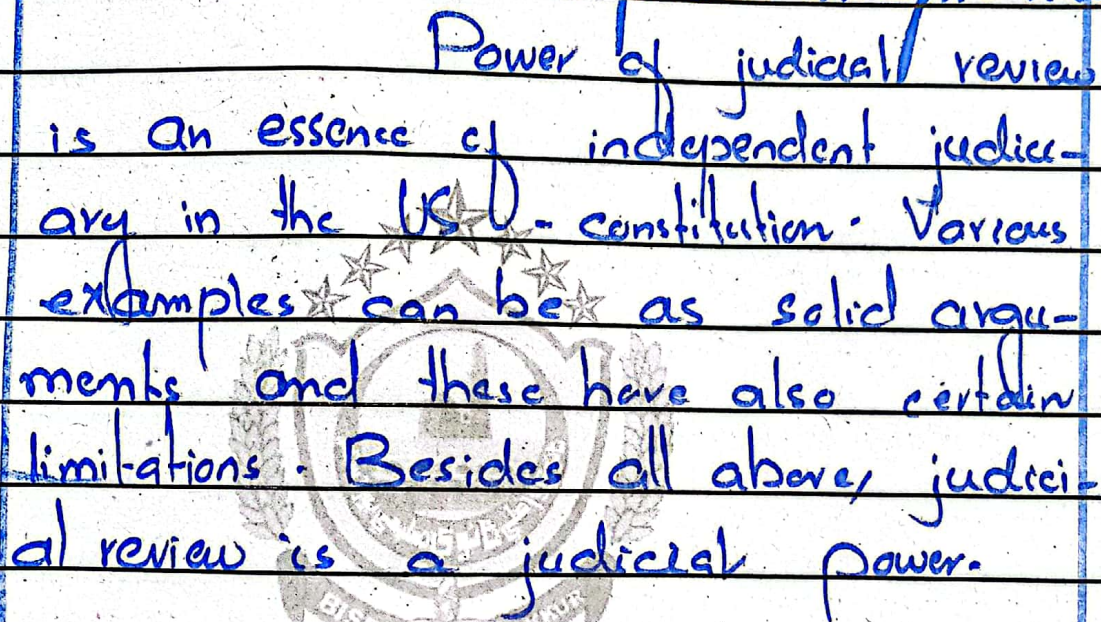 Power of judicial review
is an essence of independent judici-
ary in the US - constitution. Various
examples can be as solid argu-
ments and these have also certain
limitations. Besides all above, judici-
al review is a judicial power.